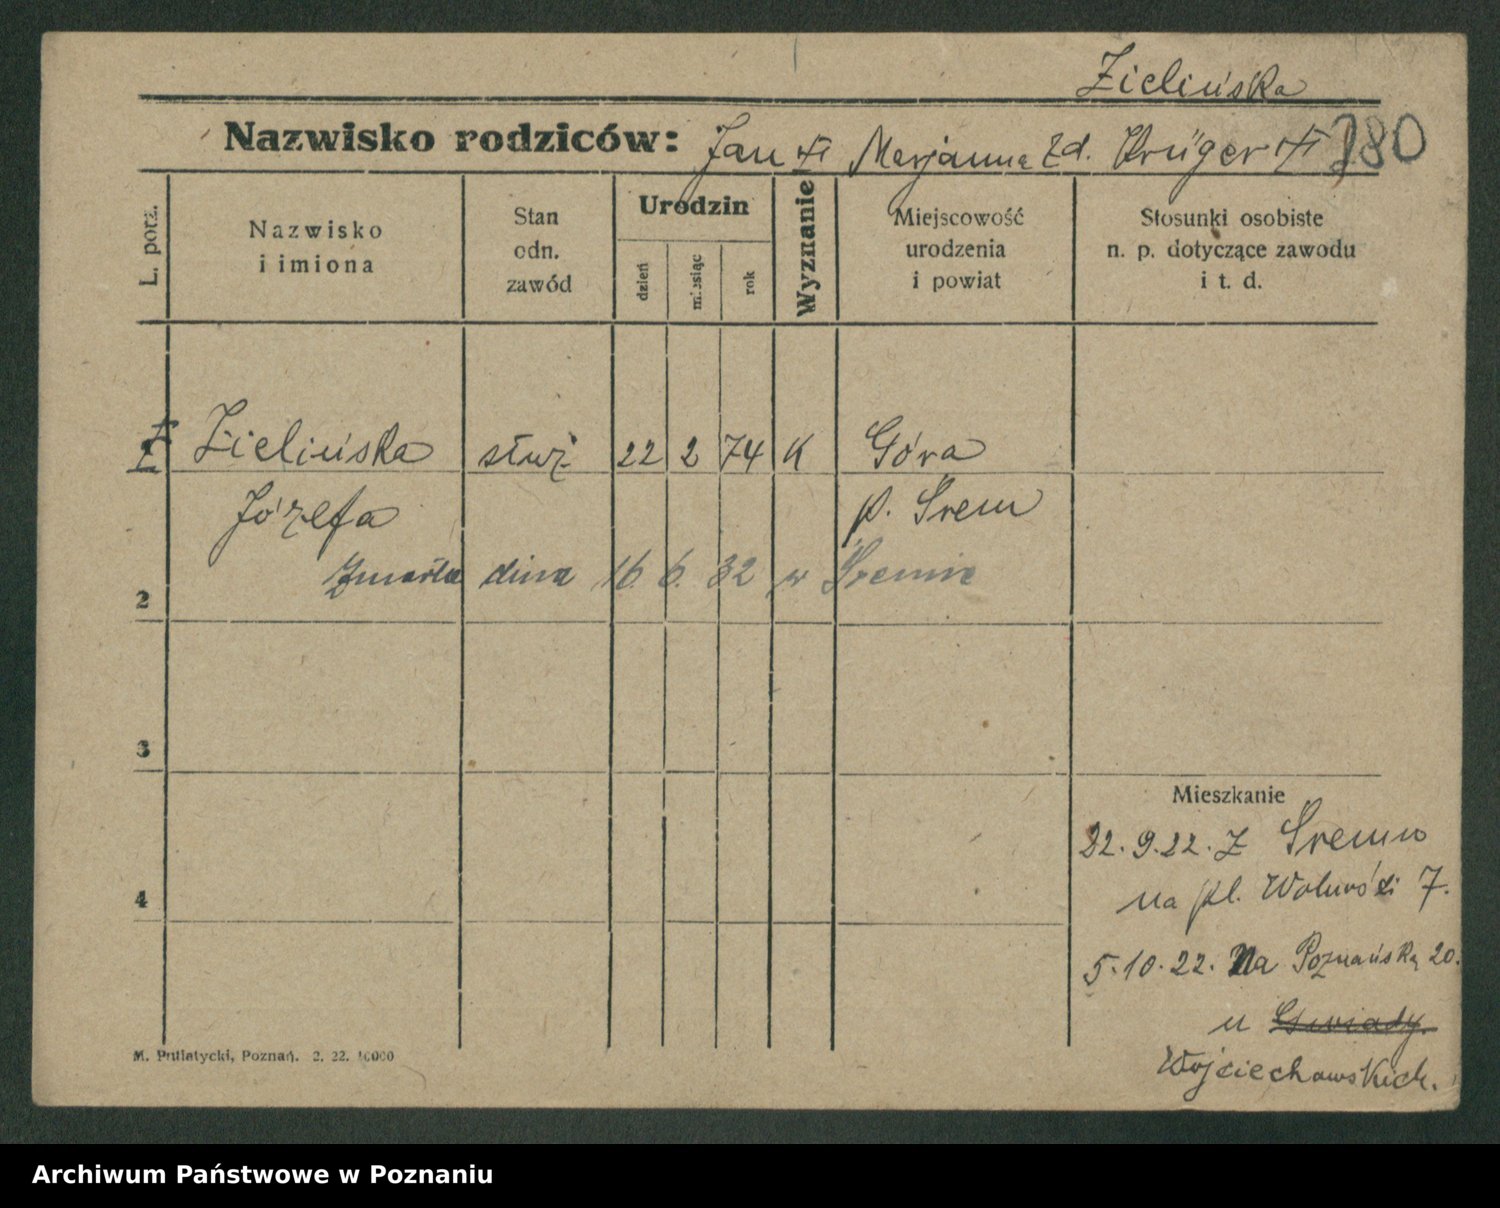 Zielińska
Nazwisko rodziców: Jan Marjanna zd. Krüger 380
L. porz.
Nazwisko i imiona
Stan odn. zawód
Urodzin
dzień
miesiąc
rok
Wyznanie
Miejscowość urodzenia i powiat
Stosunki osobiste n. p. dotyczące zawodu i t. d.
1 Zielińska służ 22 2 74 K Góra
Józefa p. Śrem
Zmarła dnia 16. 6. 32 w Śremie
2
3
Mieszkanie
22. 9. 22. z Śremu
4
na pl. Wolności 7.
5. 10. 22. Na Poznańską 20.
u Gwiady.
Wojciechowskich.
M. Putiatycki, Poznań. 2. 22. 10000
Archiwum Państwowe w Poznaniu